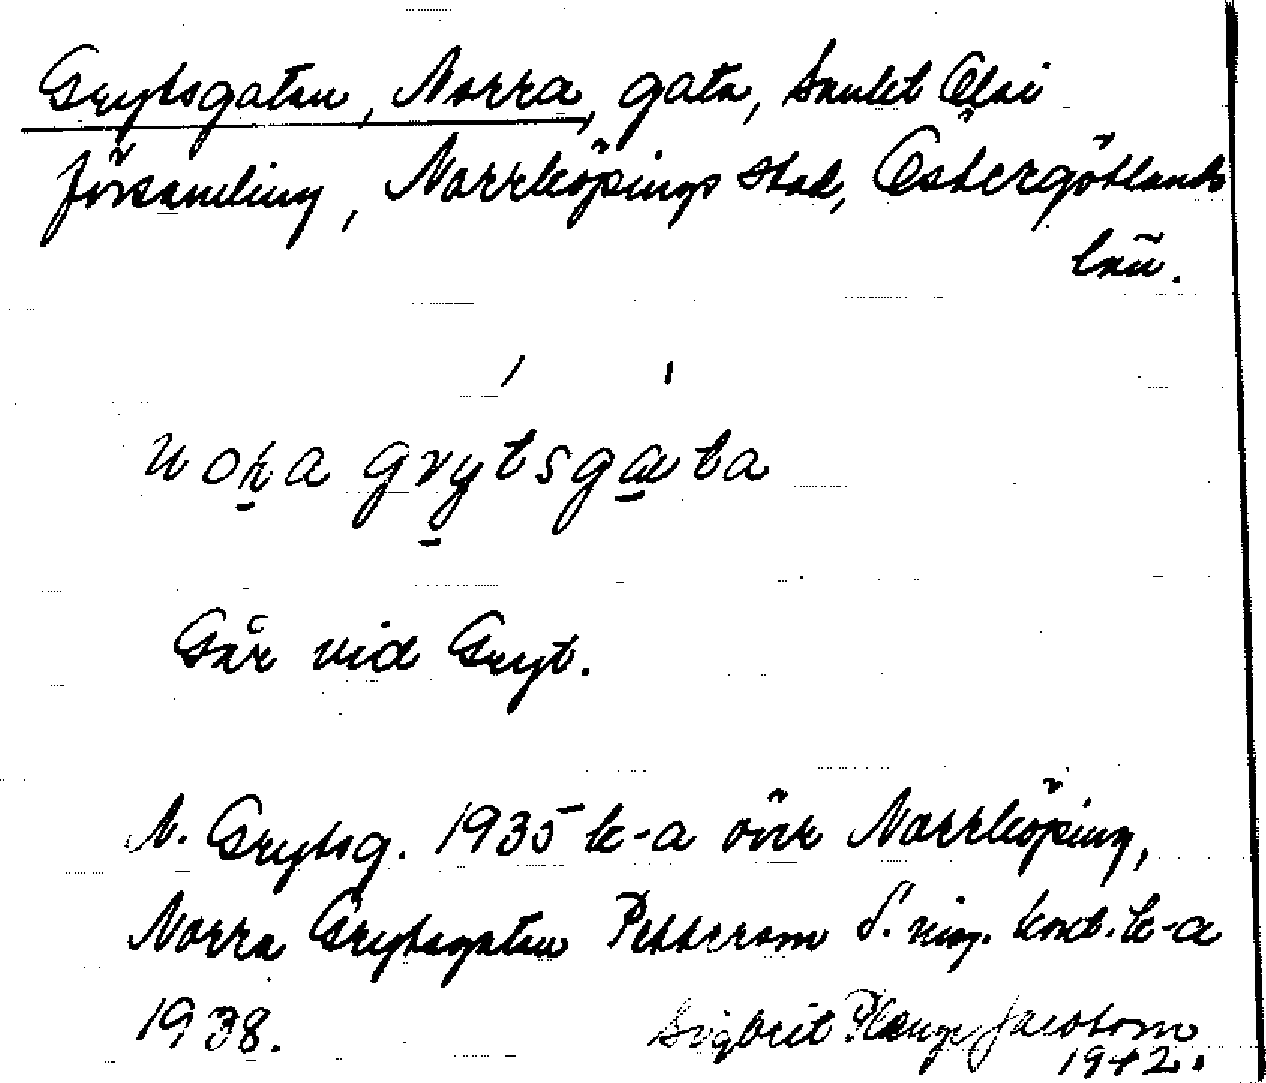 Grytsgatan, Norra, gata, Sankt Olai
församling, Norrköpings stad, Östergötlands
län.
nora grytsgata
Går vid Gryt.
N. Grytsg. 1935 k-a över Norrköping,
Norra Grytsgatan Pettersom k-a
1938. Sigbrit Plænge Jacobson
1942.